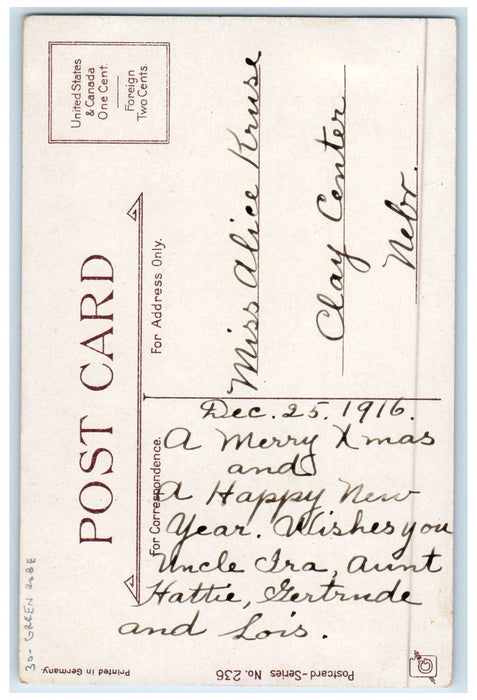 United States
& Canada
One Cent.
Foreign
Two Cents.
POST CARD
For Address Only.
Miss Alice Kruse
Clay Center
Nebr.
For Correspondence.
Dec. 25, 1916.
A Merry Xmas
and
A Happy New
Year. Wishes you
Uncle Ira, Aunt
Hattie, Gertrude
and Lois.
30- GREEN ROBE
Printed in Germany.
Postcard-Series No. 236